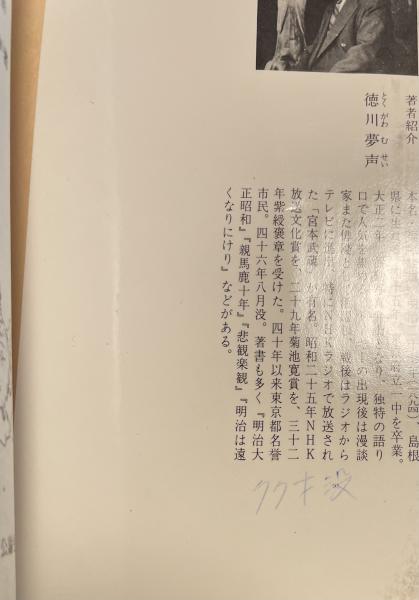 著者紹介
とくがわむせい
徳川夢声
本名 九四)、島根
県に生 立一中を卒業。
大正二年 となり、独特の語り
口で人気を の出現後は漫談
家また俳優と 戦後はラジオから
テレビに活躍、特にNHKラジオで放送され
た「宮本武蔵」が有名。昭和二十五年NHK
放送文化賞を、二十九年菊池寛賞を、三十二
年紫綬褒章を受けた。四十年以来東京都名誉
市民。四十六年八月没。著書も多く『明治大
正昭和』『親馬鹿十年』『悲観楽観』『明治は遠
くなりにけり』などがある。
77才没